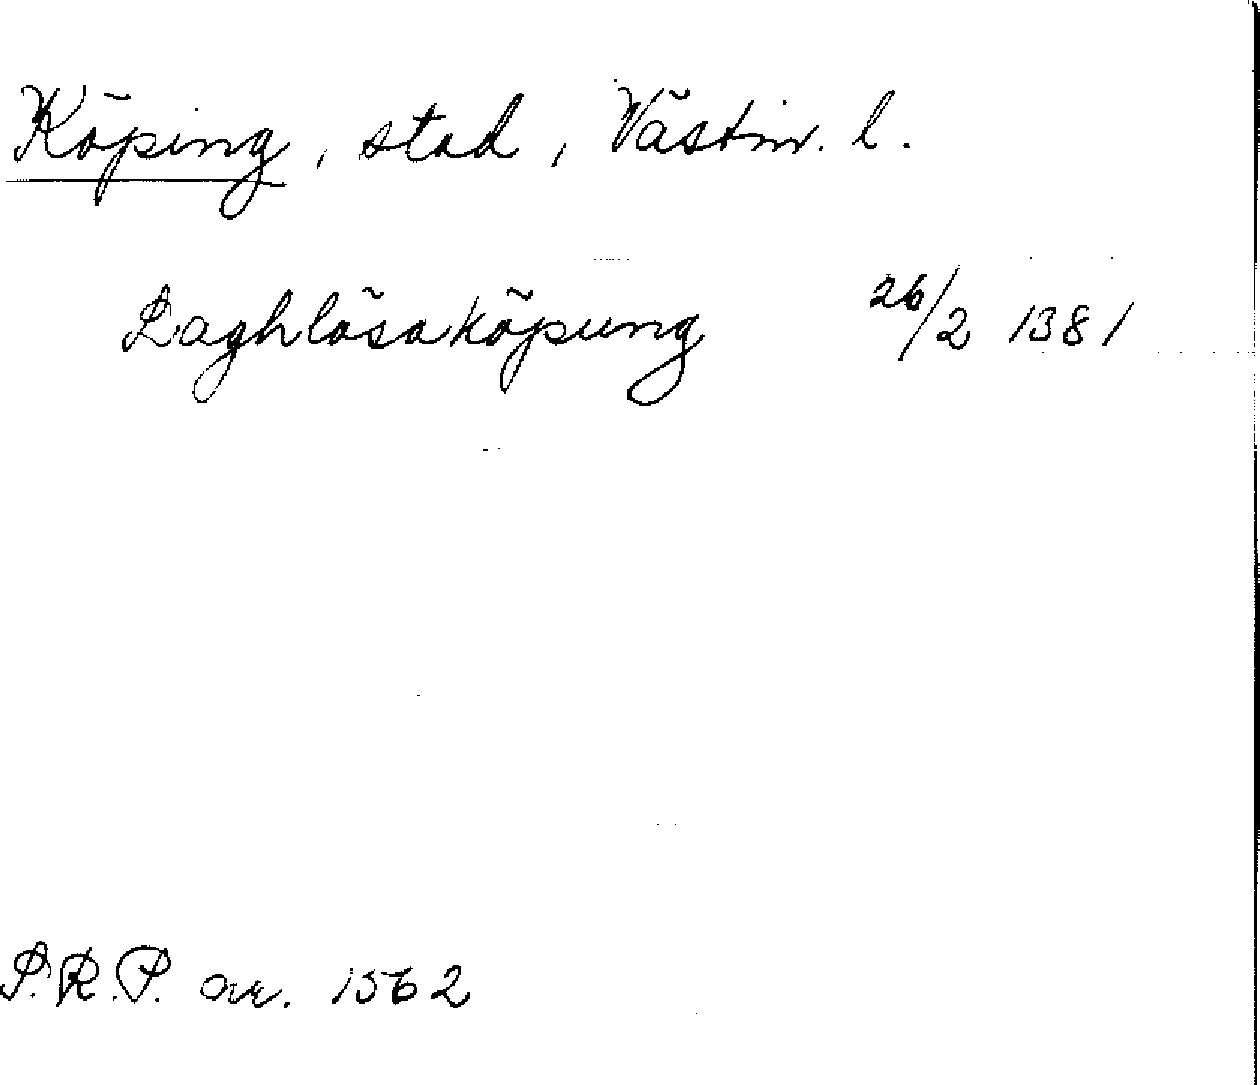 Köping, stad, Västm. l.
Laghlösaköpung 26/2 1381
S.R.P. nr. 1562